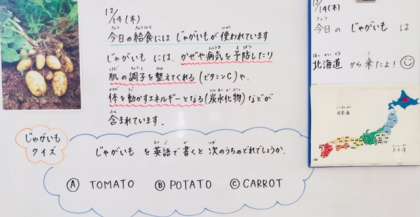 12/14(木)
今日の給食には じゃがいもが 使われています
じゃがいも には、かぜや病気を 予防したり
肌の 調子を 整えてくれる (ビタミンC)や、
体を動かすエネルギーとなる (炭水化物) などが
含まれています。
じゃがいも
クイズ
じゃがいも を英語で書くと 次のうちのどれでしょうか。
Ⓐ TOMATO Ⓑ POTATO Ⓒ CARROT
12/14(木)
今日の じゃがいも は
北海道 から 来たよ!